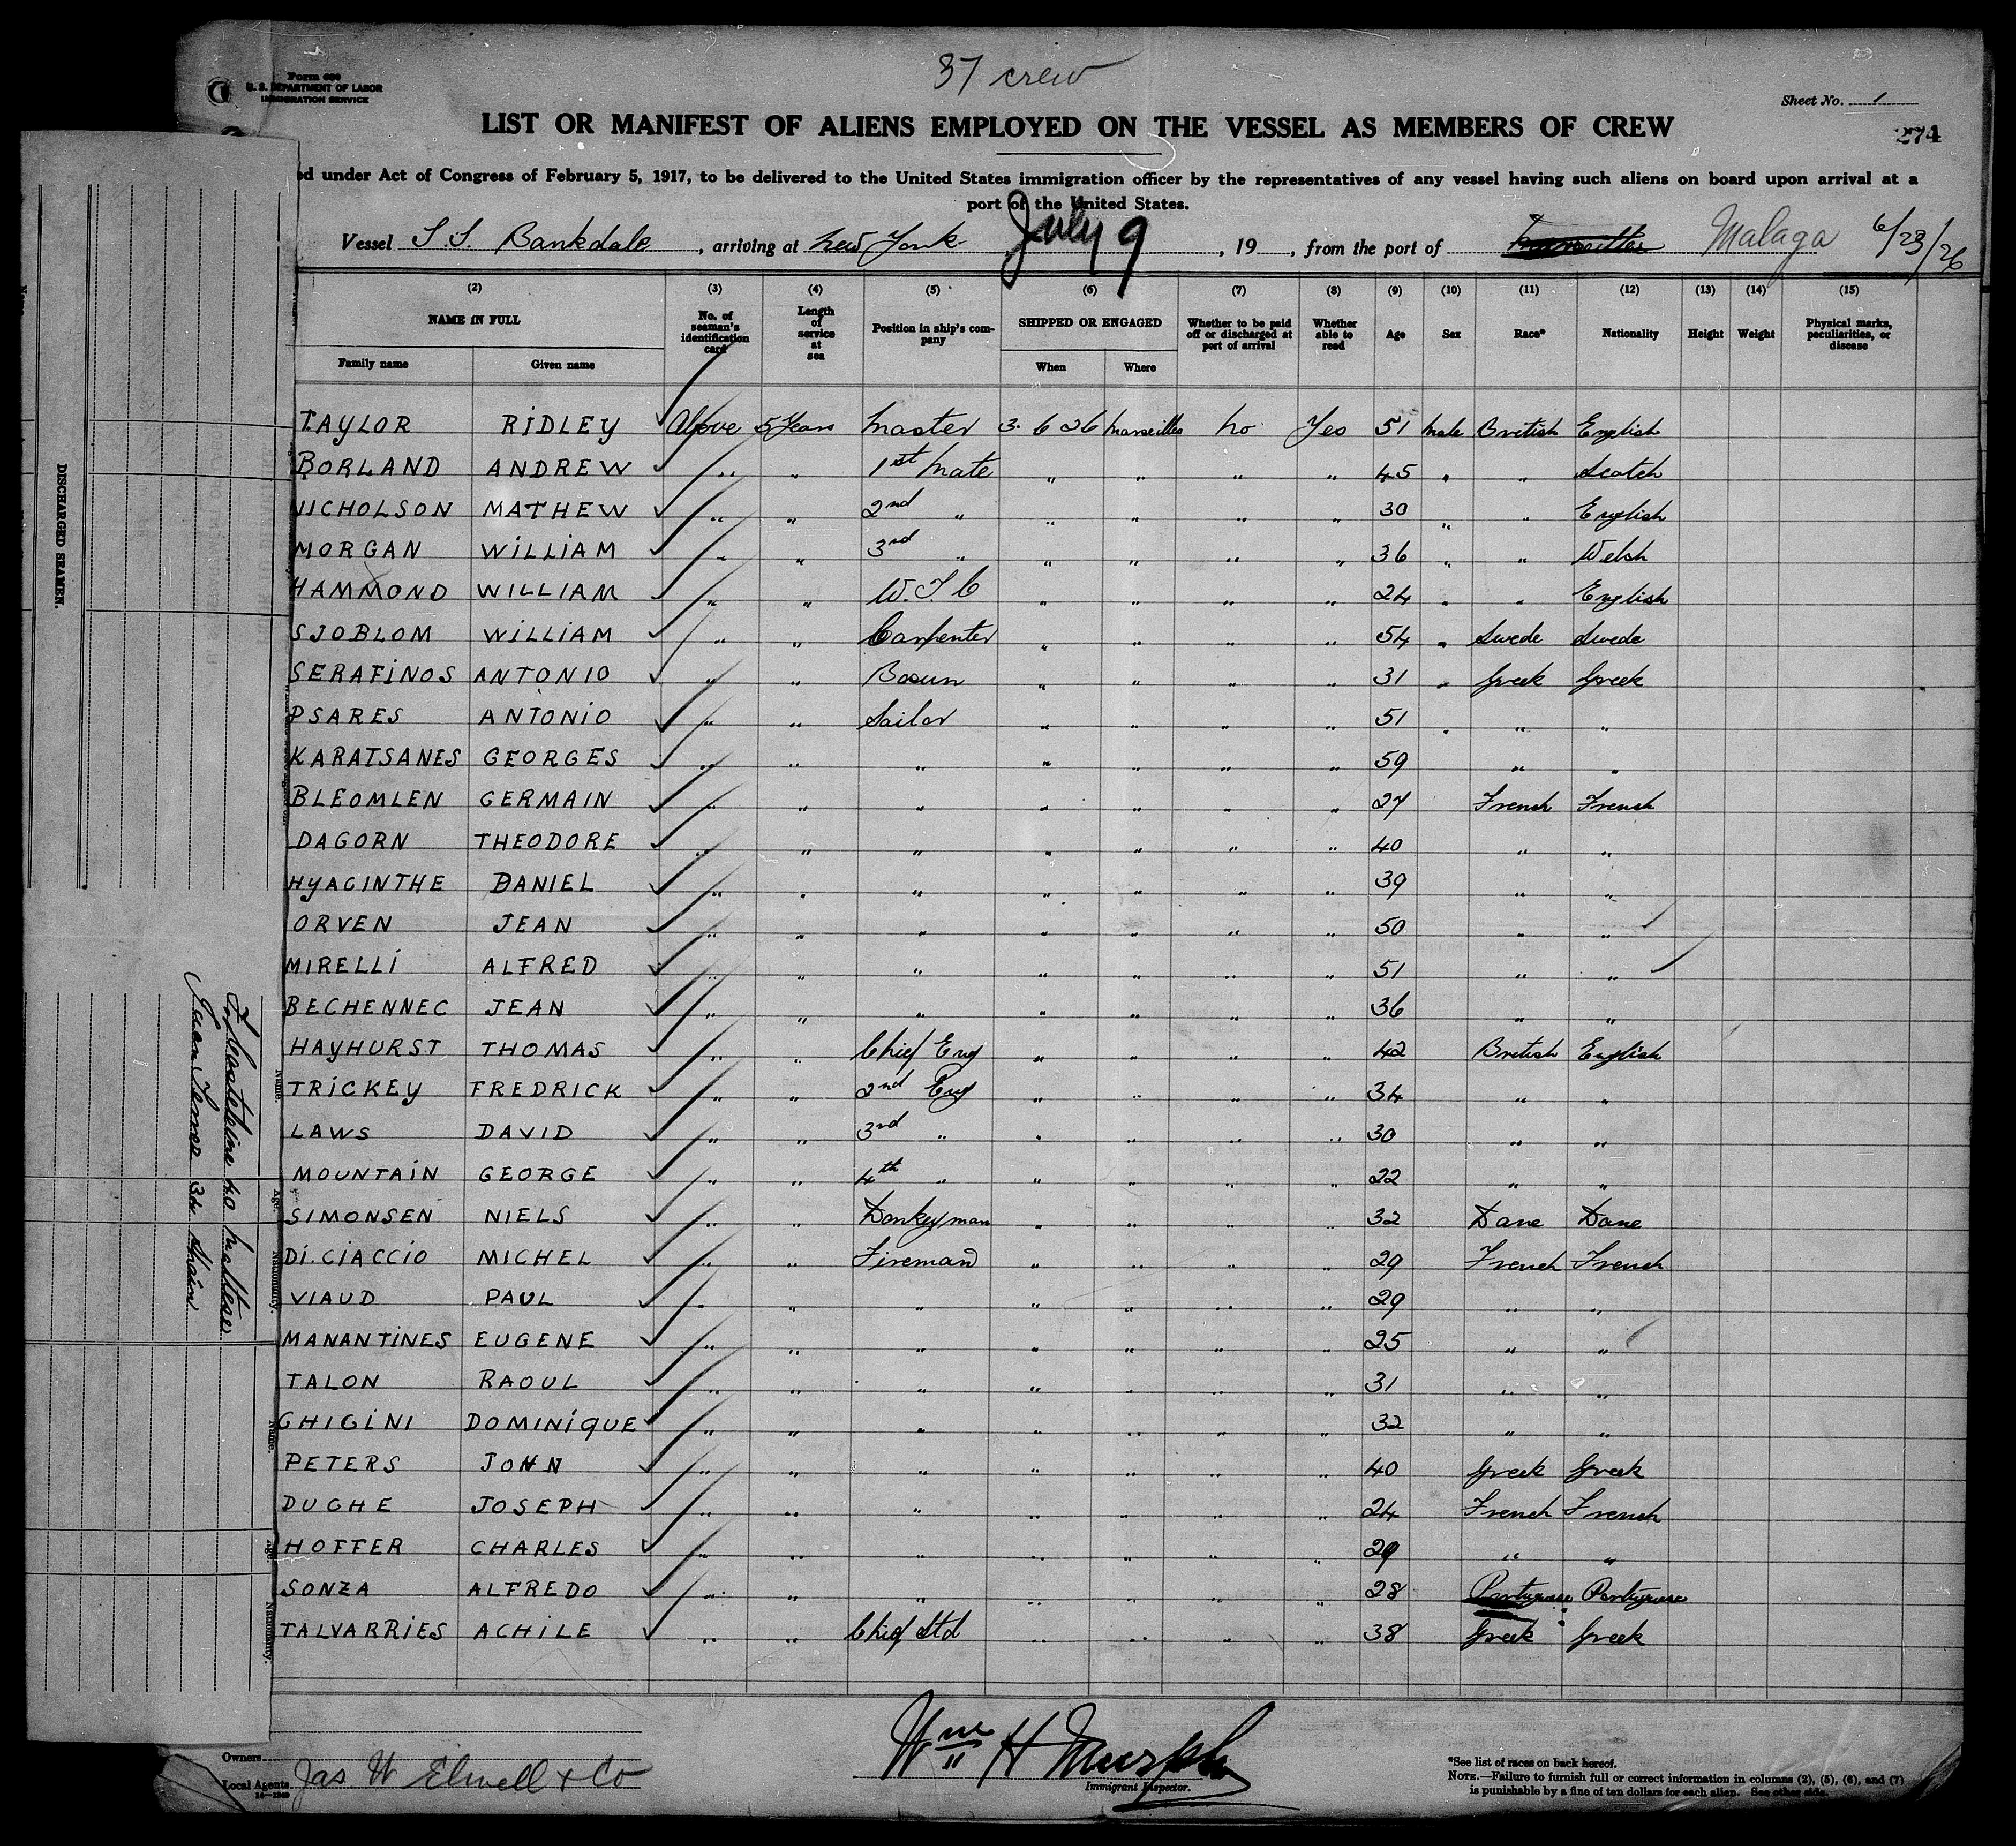 37 crew
Form 680
U. S. DEPARTMENT OF LABOR
IMMIGRATION SERVICE
Sheet No. 1
LIST OR MANIFEST OF ALIENS EMPLOYED ON THE VESSEL AS MEMBERS OF CREW
274
ed under Act of Congress of February 5, 1917, to be delivered to the United States immigration officer by the representatives of any vessel having such aliens on board upon arrival at a
port of the United States.
Vessel S.S. Bankdale, arriving at New York July 9, 19 , from the port of Malaga 6/23/26
(2) (3) (4) (5) (6) (7) (8) (9) (10) (11) (12) (13) (14) (15)
NAME IN FULL No. of seaman's identification card Length of service at sea Position in ship's company SHIPPED OR ENGAGED Whether to be paid off or discharged at port of arrival Whether able to read Age Sex Race* Nationality Height Weight Physical marks, peculiarities, or disease
Family name Given name When Where
TAYLOR RIDLEY Above 5 Years Master 3. 6 26 Marseilles No Yes 51 Male British English
BORLAND ANDREW " " 1st Mate " " " " 45 " " Scotch
NICHOLSON MATHEW " " 2nd " " " " " 30 " " English
MORGAN WILLIAM " " 3rd " " " " " 36 " " Welsh
HAMMOND WILLIAM " " W.T.C " " " " 24 " " English
SJOBLOM WILLIAM " " Carpenter " " " " 54 " Swede Swede
SERAFINOS ANTONIO " " Bosun " " " " 31 " Greek Greek
PSARES ANTONIO " " Sailor " " " " 51 " " "
KARATSANES GEORGES " " " " " " " 59 " "
BLEOMLEN GERMAIN " " " " " " " 27 French French
DAGORN THEODORE " " " " " " " 40 " "
HYACINTHE DANIEL " " " " " " " 39 " "
ORVEN JEAN " " " " " " " 50 " "
MIRELLI ALFRED " " " " " " " 51 " "
BECHENNEC JEAN " " " " " " " 36 " "
HAYHURST THOMAS " " Chief Eng " " " " 42 British English
TRICKEY FREDRICK " " 2nd Eng " " " " 34 " "
LAWS DAVID " " 3rd " " " " " 30 " "
MOUNTAIN GEORGE " " 4th " " " " " 22 " "
SIMONSEN NIELS " " Donkeyman " " " " 32 Dane Dane
DI.CIACCIO MICHEL " " Fireman " " " " 29 French French
VIAUD PAUL " " " " " " " 29 " "
MANANTINES EUGENE " " " " " " " 25 " "
TALON RAOUL " " " " " " " 31 " "
GHIGINI DOMINIQUE " " " " " " " 32 " "
PETERS JOHN " " " " " " " 40 Greek Greek
DUGHE JOSEPH " " " " " " " 24 French French
HOFFER CHARLES " " " " " " " 29 " "
SONZA ALFREDO " " " " " " " 28 Portuguese Portuguese
TALVARRIES ACHILE " " Chief Std " " " " 38 Greek Greek
DISCHARGED SEAMEN.
40 Maltese
Juan 34 Spain
Name. Age. Nationality.
Name. Age. Nationality.
Owners
Local Agents Jas W Elwell & Co
Wm H Murphy
Immigrant Inspector.
*See list of races on back hereof.
NOTE.—Failure to furnish full or correct information in columns (2), (5), (6), and (7)
is punishable by a fine of ten dollars for each alien. See other side.